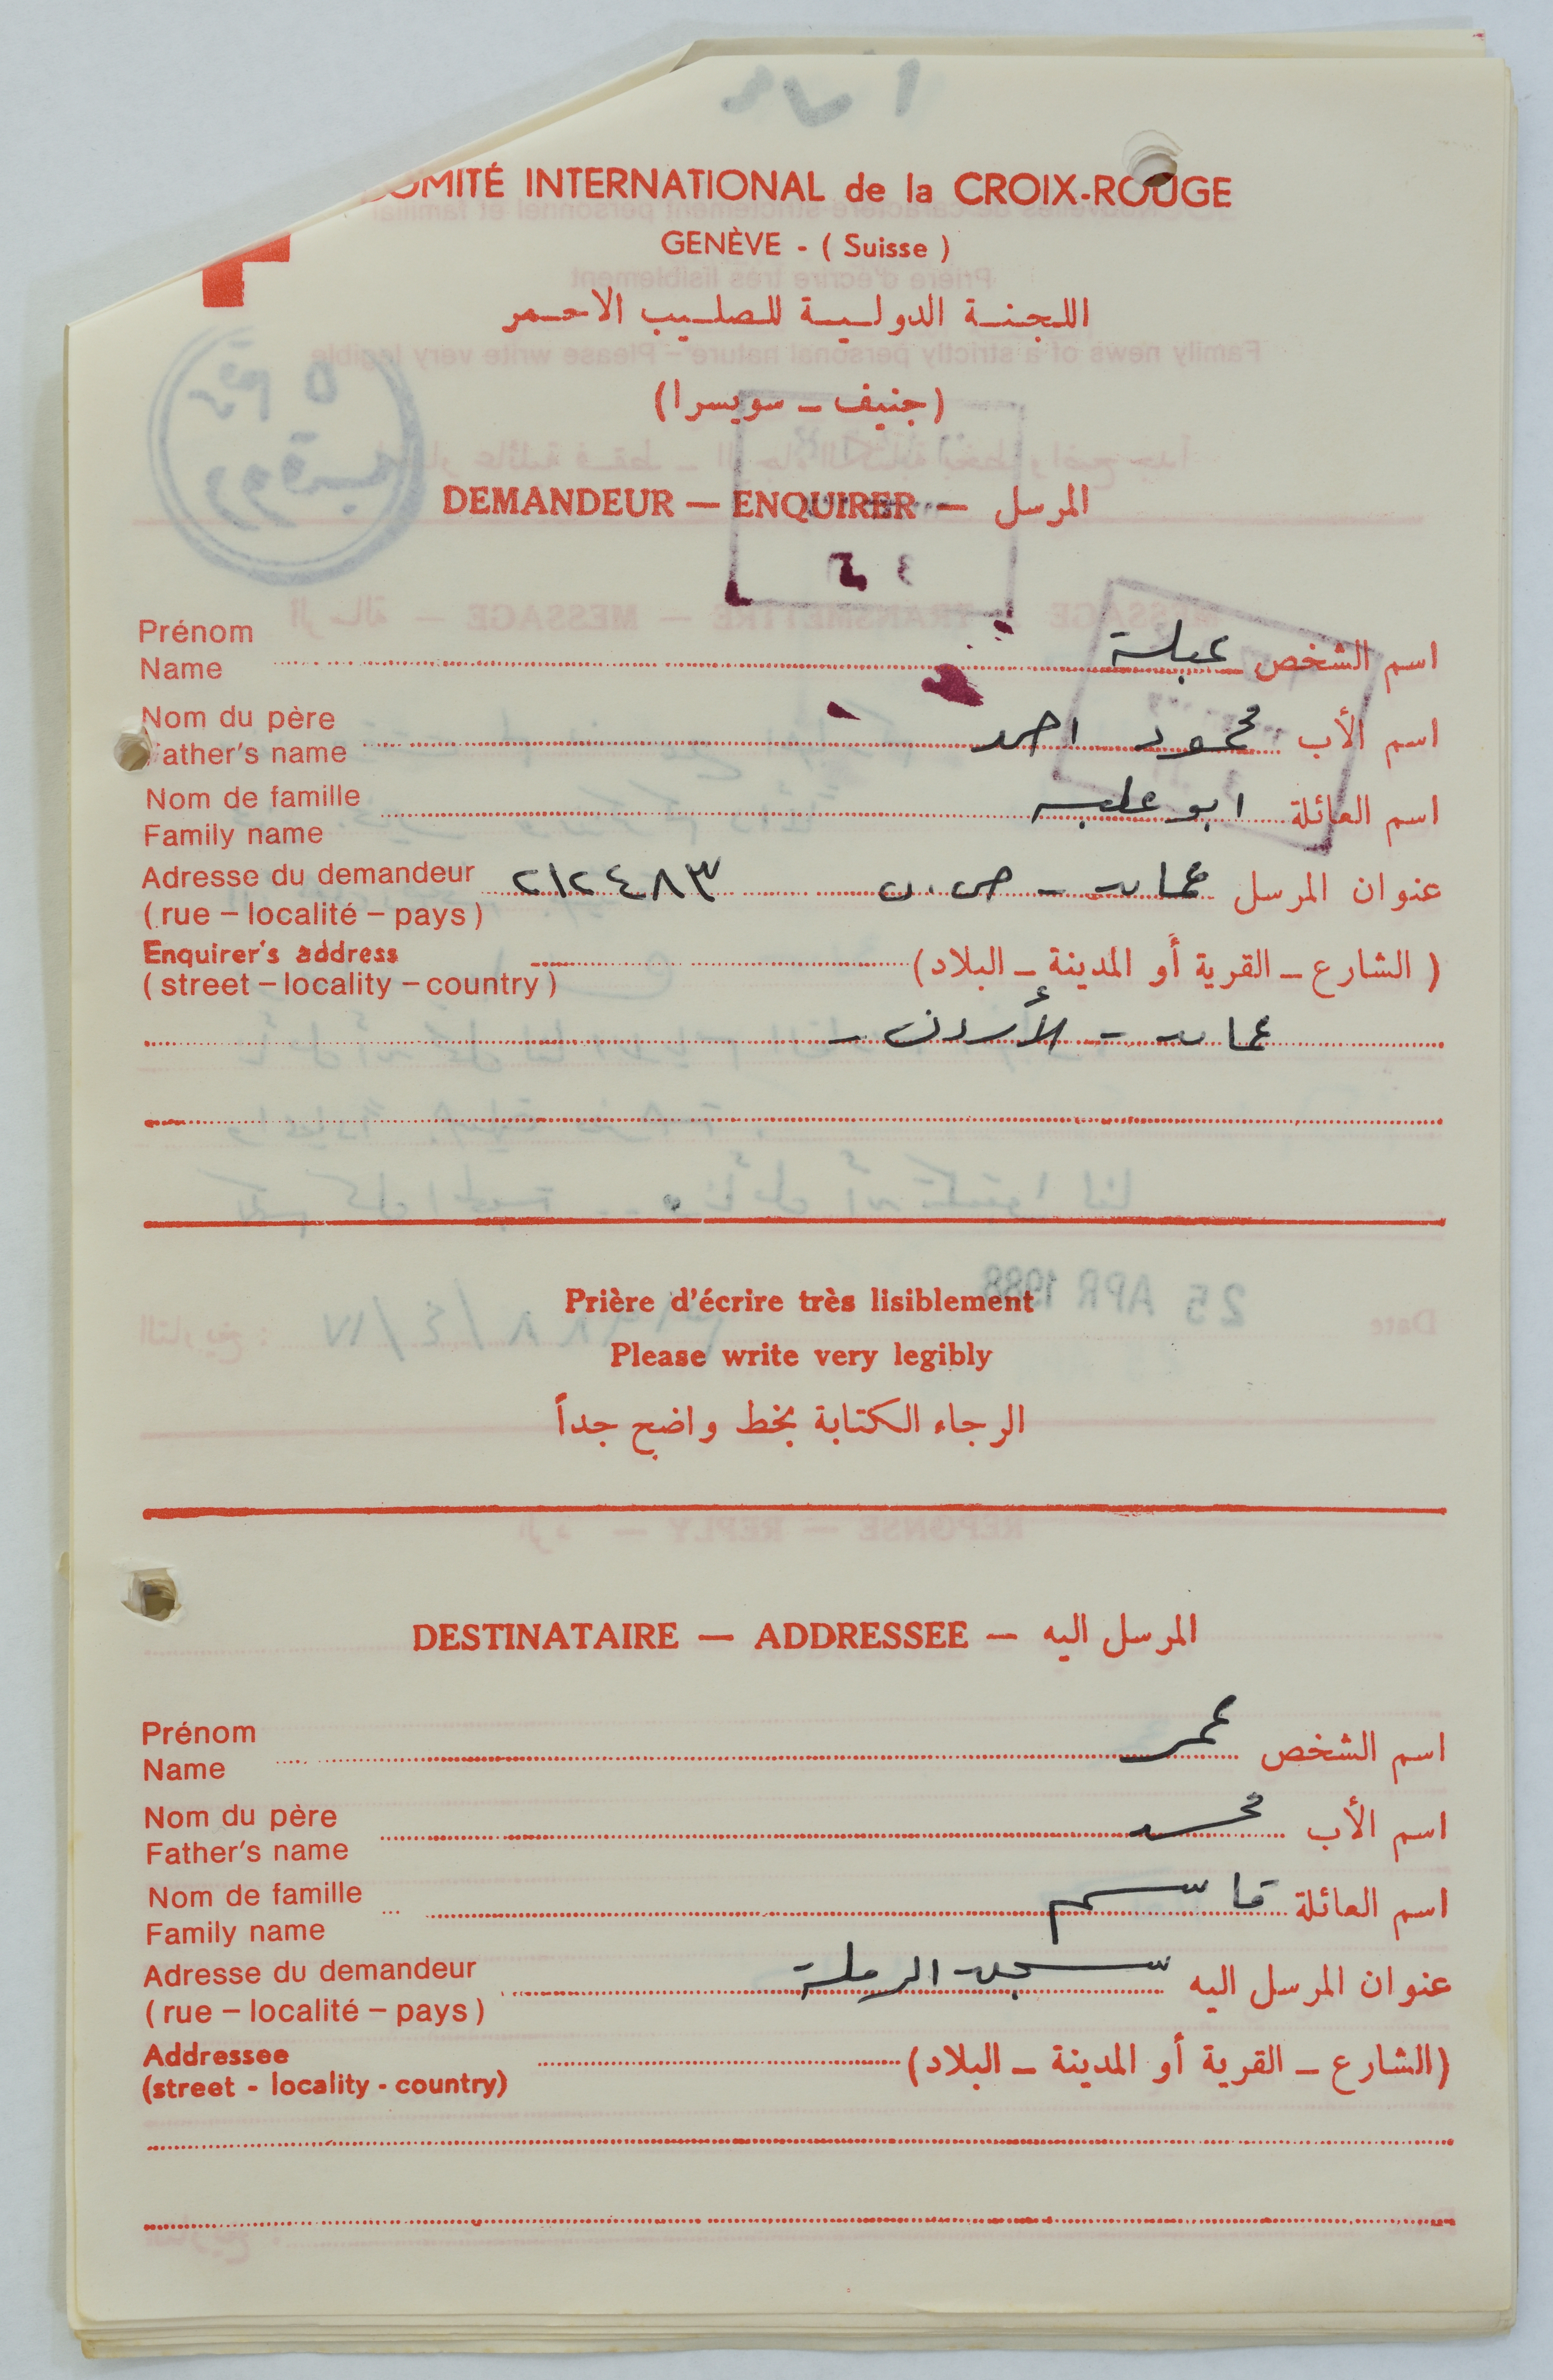 COMITÉ INTERNATIONAL de la CROIX-ROUGE
GENÈVE - ( Suisse )
اللجنة الدولية للصليب الاحمر
(جنيف – سويسرا)
DEMANDEUR — ENQUIRER — المرسل
Prénom
Name
اسم الشخص عبلة
Nom du père
Father's name
اسم الأب محمود احمد
Nom de famille
Family name
اسم العائلة ابو علبه
Adresse du demandeur
( rue – localité – pays )
عنوان المرسل عمان - ص.ب ٢١٢٤٨٣
Enquirer's address
( street – locality – country )
( الشارع – القرية أو المدينة – البلاد)
عمان - الأردن -
25 APR 1988
Prière d'écrire très lisiblement
Please write very legibly
الرجاء الكتابة بخط واضح جداً
DESTINATAIRE — ADDRESSEE — المرسل اليه
Prénom
Name
اسم الشخص عمر
Nom du père
Father's name
اسم الأب محمد
Nom de famille
Family name
اسم العائلة قاسم
Adresse du demandeur
( rue – localité – pays )
عنوان المرسل اليه سجن الرملة
Addressee
(street - locality - country)
(الشارع – القرية أو المدينة – البلاد)